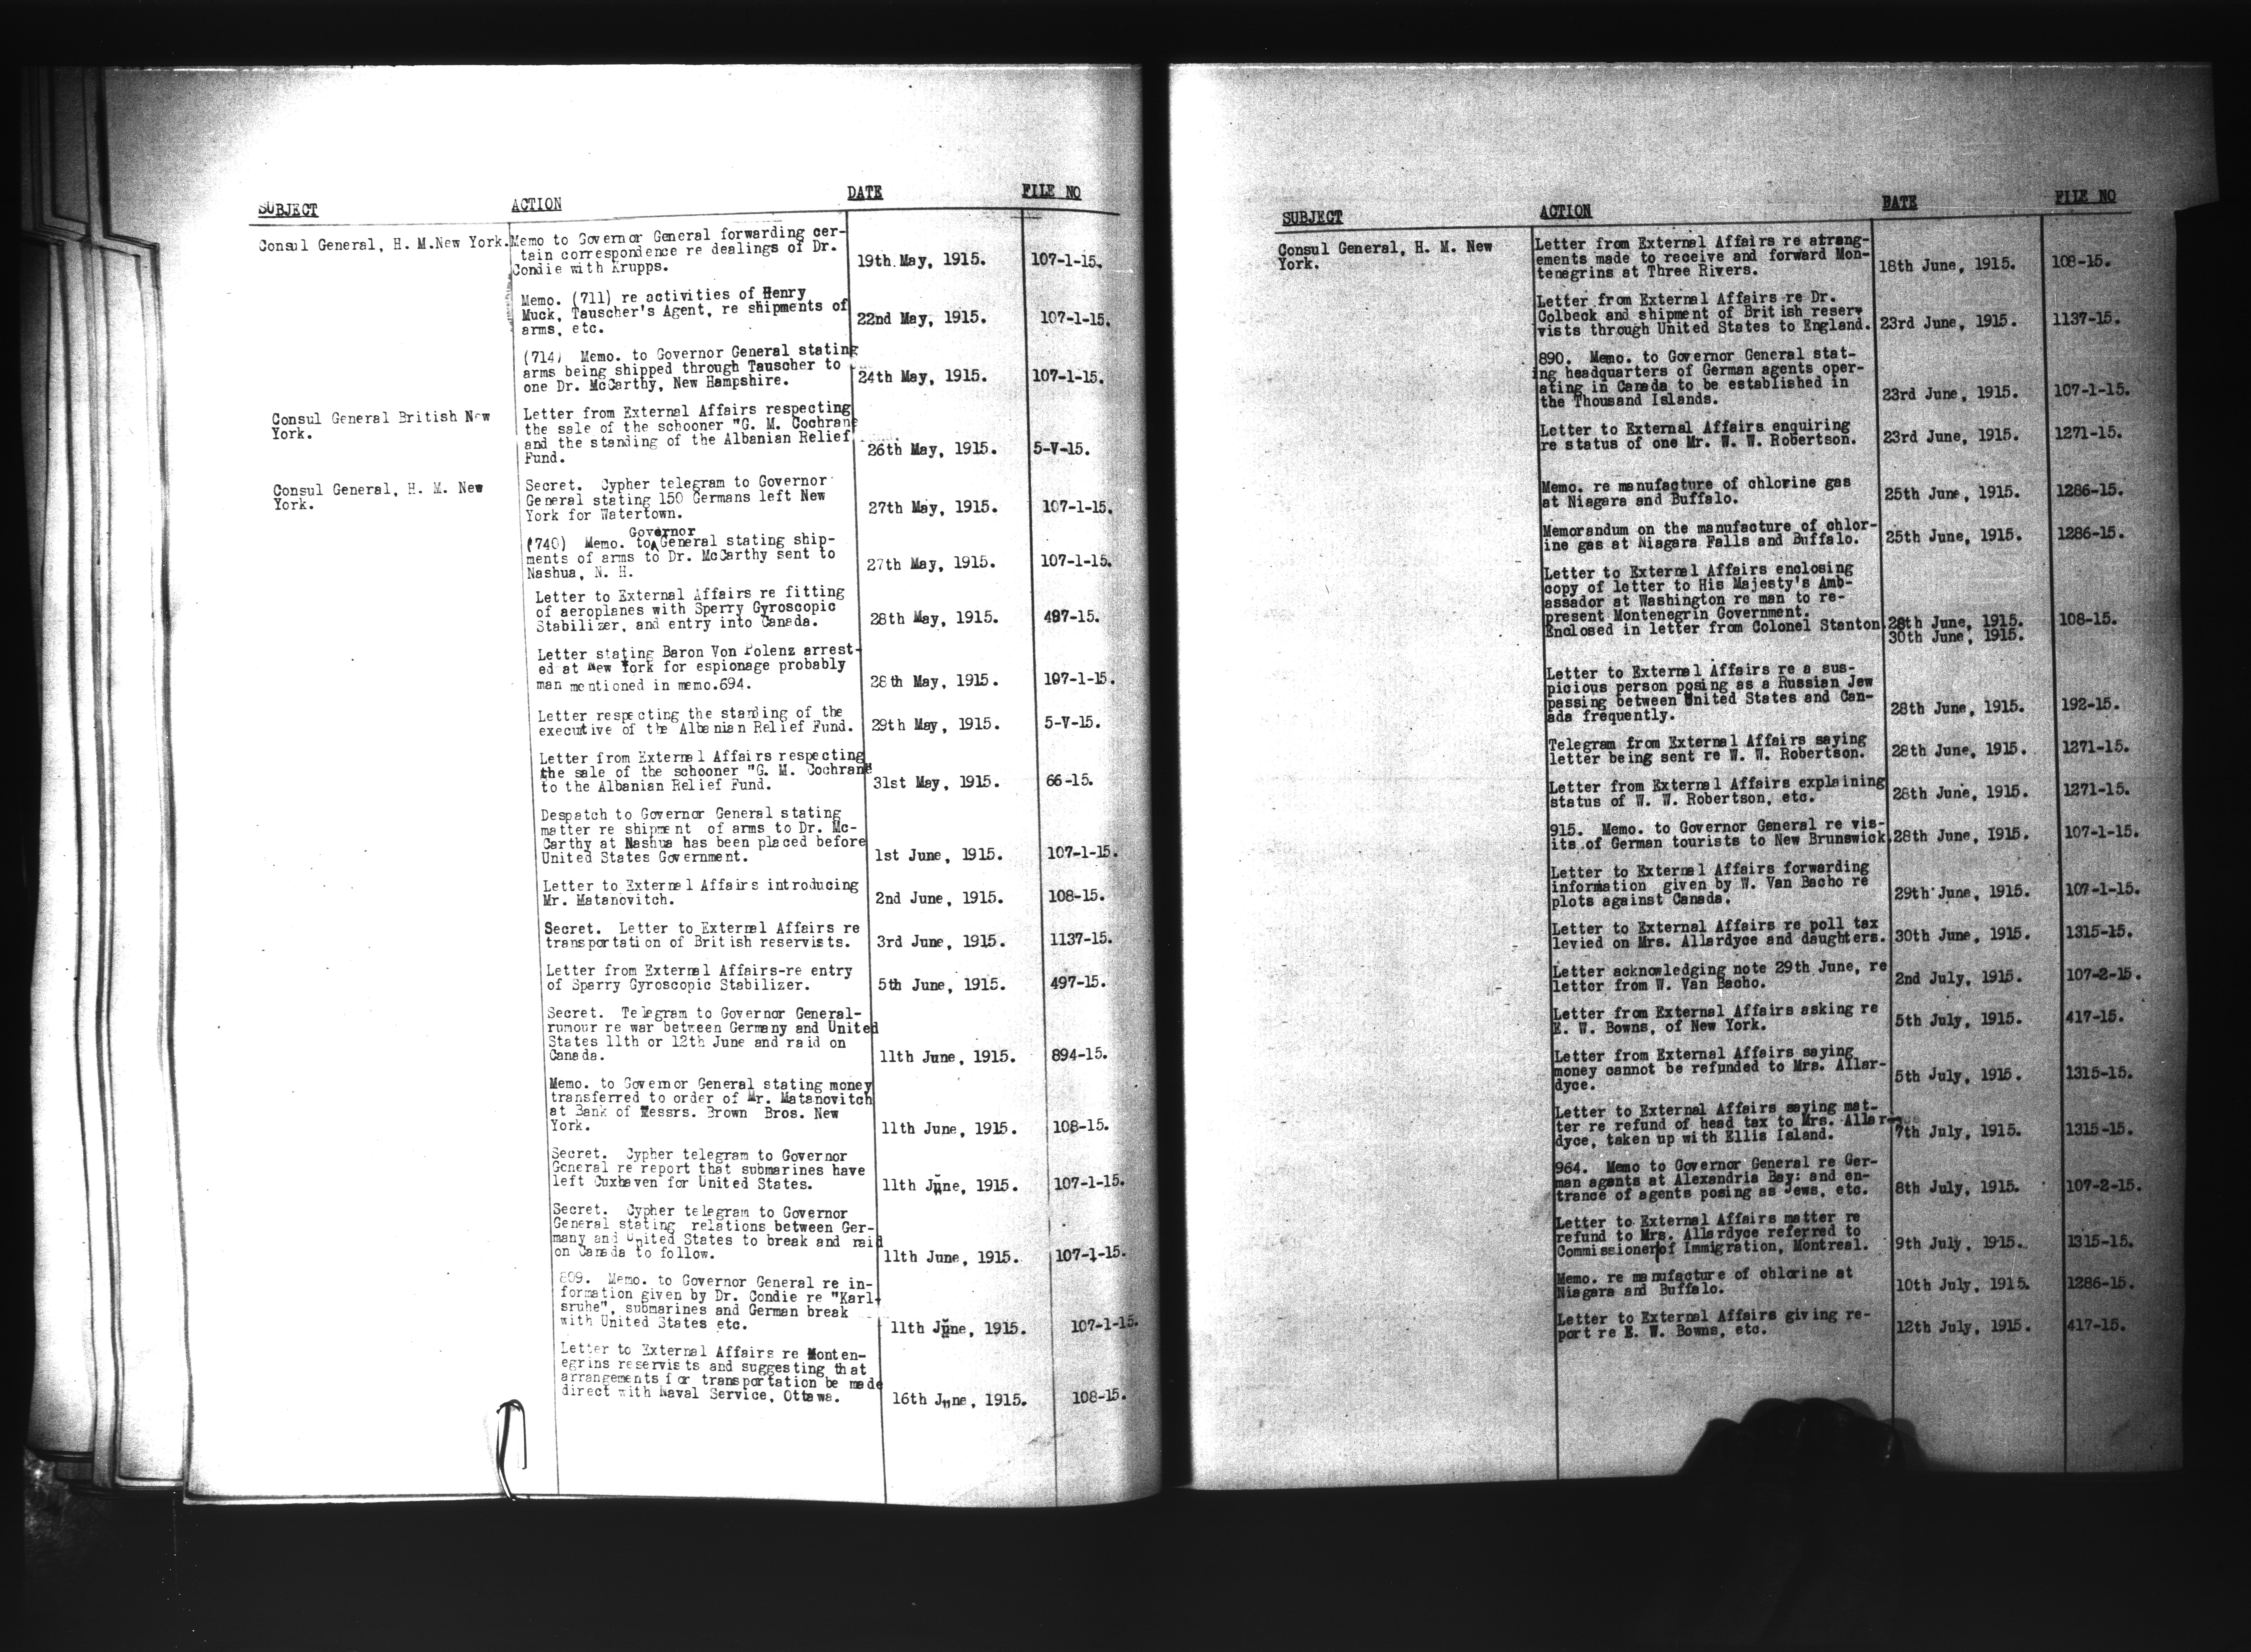 SUBJECT ACTION DATE FILE NO
Consul General, H. M.New York. Memo to Governor General forwarding cer-
tain correspondence re dealings of Dr.
Condie with Krupps. 19th May, 1915. 107-1-15.
Memo. (711) re activities of Henry
Muck, Tauscher's Agent, re shipments of
arms, etc. 22nd May, 1915. 107-1-15.
(714) Memo. to Governor General stating
arms being shipped through Tauscher to
one Dr. McCarthy, New Hampshire. 24th May, 1915. 107-1-15.
Consul General British New
York.
Letter from External Affairs respecting
the sale of the schooner "G. M. Cochrane
and the standing of the Albanian Relief
Fund. 26th May, 1915. 5-V-15.
Consul General, H. M. New
York.
Secret. Cypher telegram to Governor
General stating 150 Germans left New
York for Watertown. 27th May, 1915. 107-1-15.
Governor
(740) Memo. to General stating ship-
ments of arms to Dr. McCarthy sent to
Nashua, N. H. 27th May, 1915. 107-1-15.
Letter to External Affairs re fitting
of aeroplanes with Sperry Gyroscopic
Stabilizer, and entry into Canada. 28th May, 1915. 497-15.
Letter stating Baron Von Polenz arrest-
ed at New York for espionage probably
man mentioned in memo.694. 28th May, 1915. 107-1-15.
Letter respecting the standing of the
executive of the Albanian Relief Fund. 29th May, 1915. 5-V-15.
Letter from External Affairs respecting
the sale of the schooner "G. M. Cochrane"
to the Albanian Relief Fund. 31st May, 1915. 66-15.
Despatch to Governor General stating
matter re shipment of arms to Dr. Mc-
Carthy at Nashua has been placed before
United States Government. 1st June, 1915. 107-1-15.
Letter to External Affairs introducing
Mr. Matanovitch. 2nd June, 1915. 108-15.
Secret. Letter to External Affairs re
transportation of British reservists. 3rd June, 1915. 1137-15.
Letter from External Affairs-re entry
of Sparry Gyroscopic Stabilizer. 5th June, 1915. 497-15.
Secret. Telegram to Governor General-
rumour re war between Germany and United
States 11th or 12th June and raid on
Canada. 11th June, 1915. 894-15.
Memo. to Governor General stating money
transferred to order of Mr. Matanovitch
at Bank of Messrs. Brown Bros. New
York. 11th June, 1915. 108-15.
Secret. Cypher telegram to Governor
General re report that submarines have
left Cuxhaven for United States. 11th June, 1915. 107-1-15.
Secret. Cypher telegram to Governor
General stating relations between Ger-
many and United States to break and raid
on Canada to follow. 11th June, 1915. 107-1-15.
809. Memo. to Governor General re in-
formation given by Dr. Condie re "Karl-
sruhe", submarines and German break
with United States etc. 11th June, 1915. 107-1-15.
Letter to External Affairs re Monten-
egrins reservists and suggesting that
arrangements for transportation be made
direct with Naval Service, Ottawa. 16th June, 1915. 108-15.
SUBJECT ACTION DATE FILE NO
Consul General, H. M. New
York.
Letter from External Affairs re arrang-
ements made to receive and forward Mon-
tenegrins at Three Rivers. 18th June, 1915. 108-15.
Letter from External Affairs re Dr.
Colbeck and shipment of British reserv
vists through United States to England. 23rd June, 1915. 1137-15.
890. Memo. to Governor General stat-
ing headquarters of German agents oper-
ating in Canada to be established in
the Thousand Islands. 23rd June, 1915. 107-1-15.
Letter to External Affairs enquiring
re status of one Mr. W. W. Robertson. 23rd June, 1915. 1271-15.
Memo. re manufacture of chlorine gas
at Niagara and Buffalo. 25th June, 1915. 1286-15.
Memorandum on the manufacture of chlor-
ine gas at Niagara Falls and Buffalo. 25th June, 1915. 1286-15.
Letter to External Affairs enclosing
copy of letter to His Majesty's Amb-
assador at Washington re man to re-
present Montenegrin Government.
Enclosed in letter from Colonel Stanton 28th June, 1915. 108-15.
30th June, 1915.
Letter to External Affairs re a sus-
picious person posing as a Russian Jew
passing between United States and Can-
ada frequently. 28th June, 1915. 192-15.
Telegram from External Affairs saying
letter being sent re W. W. Robertson. 28th June, 1915. 1271-15.
Letter from External Affairs explaining
status of W. W. Robertson, etc. 28th June, 1915. 1271-15.
915. Memo. to Governor General re vis-
its of German tourists to New Brunswick. 28th June, 1915. 107-1-15.
Letter to External Affairs forwarding
information given by W. Van Bacho re
plots against Canada. 29th June, 1915. 107-1-15.
Letter to External Affairs re poll tax
levied on Mrs. Allardyce and daughters. 30th June, 1915. 1315-15.
Letter acknowledging note 29th June, re
letter from W. Van Bacho. 2nd July, 1915. 107-2-15.
Letter from External Affairs asking re
E. W. Bowns, of New York. 5th July, 1915. 417-15.
Letter from External Affairs saying
money cannot be refunded to Mrs. Allar-
dyce. 5th July, 1915. 1315-15.
Letter to External Affairs saying mat-
ter re refund of head tax to Mrs. Allar-
dyce, taken up with Ellis Island. 7th July, 1915. 1315-15.
964. Memo to Governor General re Ger-
man agents at Alexandria Bay; and en-
trance of agents posing as Jews, etc. 8th July, 1915. 107-2-15.
Letter to External Affairs matter re
refund to Mrs. Allardyce referred to
Commissioner of Immigration, Montreal. 9th July, 1915. 1315-15.
Memo. re manufacture of chlorine at
Niagara and Buffalo. 10th July, 1915. 1286-15.
Letter to External Affairs giving re-
port re E. W. Bowns, etc. 12th July, 1915. 417-15.